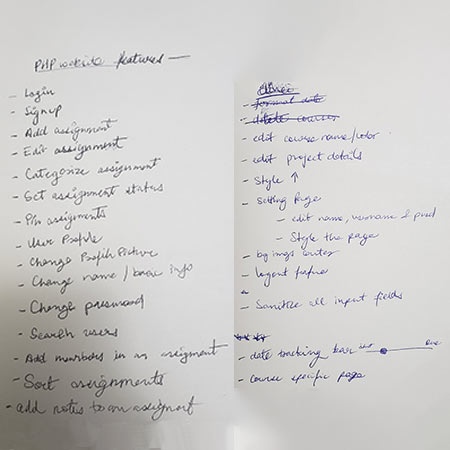 PHP website features —
- Login
- Sign up
- Add assignment
- Edit assignment
- Categorize assignment
- Set assignment status
- Pin assignments
- User Profile
- Change Profile Picture
- Change name / basic info
- Change password
- Search users
- Add members in an assigment
- Sort assignments
- add notes to an assigment
- format date
- delete courses
- edit course name/color
- edit project details
- Style ↑
- Setting Page
- edit name, username & pwd
- Style the page
- bg imgs
- Sanitize all input fields
- date tracking bar
- Course specific page